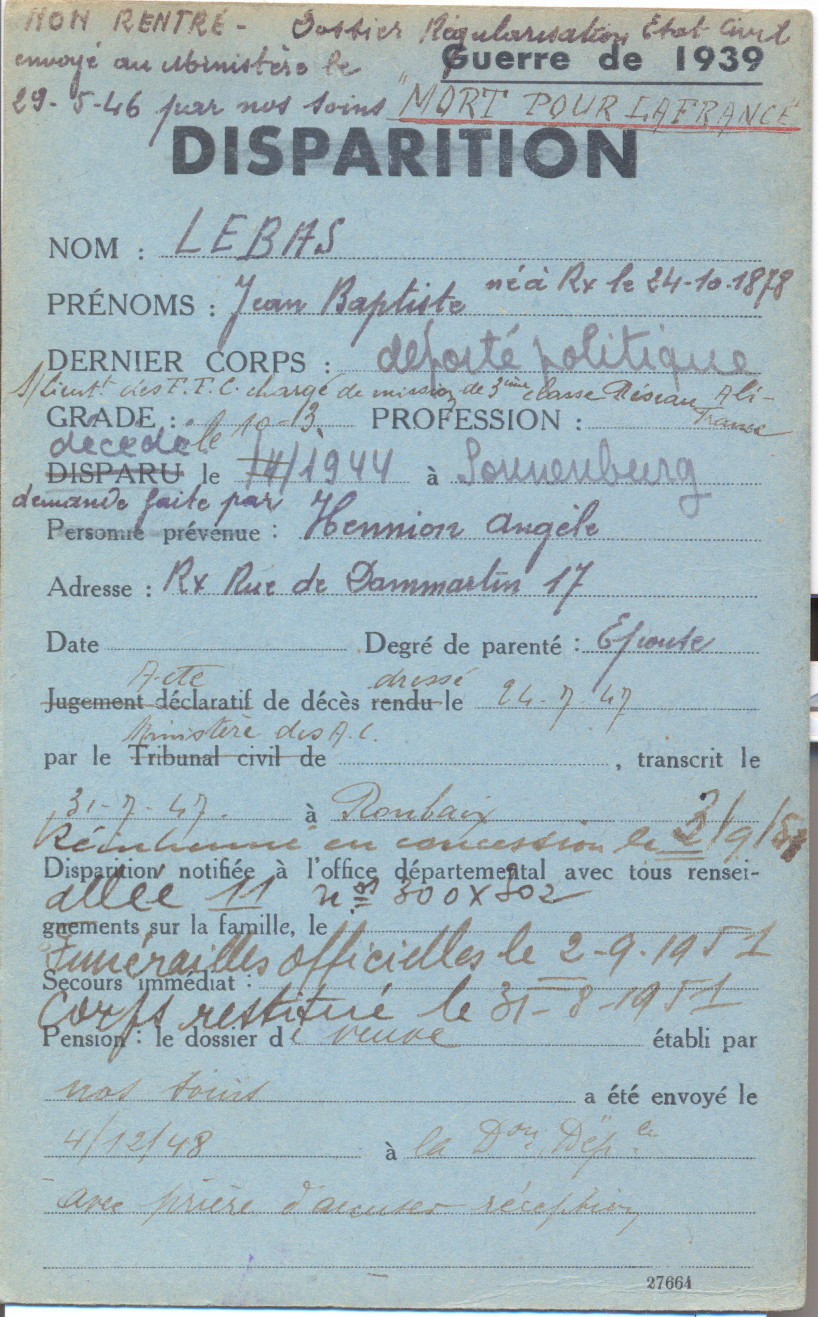 NON RENTRÉ - Dossier Régularisation Etat Civil
envoyé au Ministère le
Guerre de 1939
29-5-46 par nos soins "MORT POUR LA FRANCE"
DISPARITION
NOM : LEBAS
PRÉNOMS : Jean Baptiste né à Rx le 24-10-1878
DERNIER CORPS : déporté politique
S/lieutt des F.F.C. chargé de mission de 3ème classe Réseau Ali-
France
GRADE : PROFESSION :
décédé le 10-3.
DISPARU le /4/1944 à Sonnenburg
demande faite par
Personne prévenue : Hennion Angèle
Adresse : Rx Rue de Dammartin 17
Date Degré de parenté : Epouse
Acte dressé
Jugement déclaratif de décès rendu le 24-7-47
Ministère des A.C.
par le Tribunal civil de , transcrit le
31-7-47. à Roubaix
Réinhumé en concession le 2/9/51
Disparition notifiée à l'office départemental avec tous rensei-
allée 11 nos 300 x 302
gnements sur la famille, le
Funérailles officielles le 2-9-1951
Secours immédiat :
Corps restitué le 31-8-1951
Pension : le dossier de veuve établi par
nos soins a été envoyé le
4/12/48 à la Don Dép.le
avec prière d'accuser réception
27664